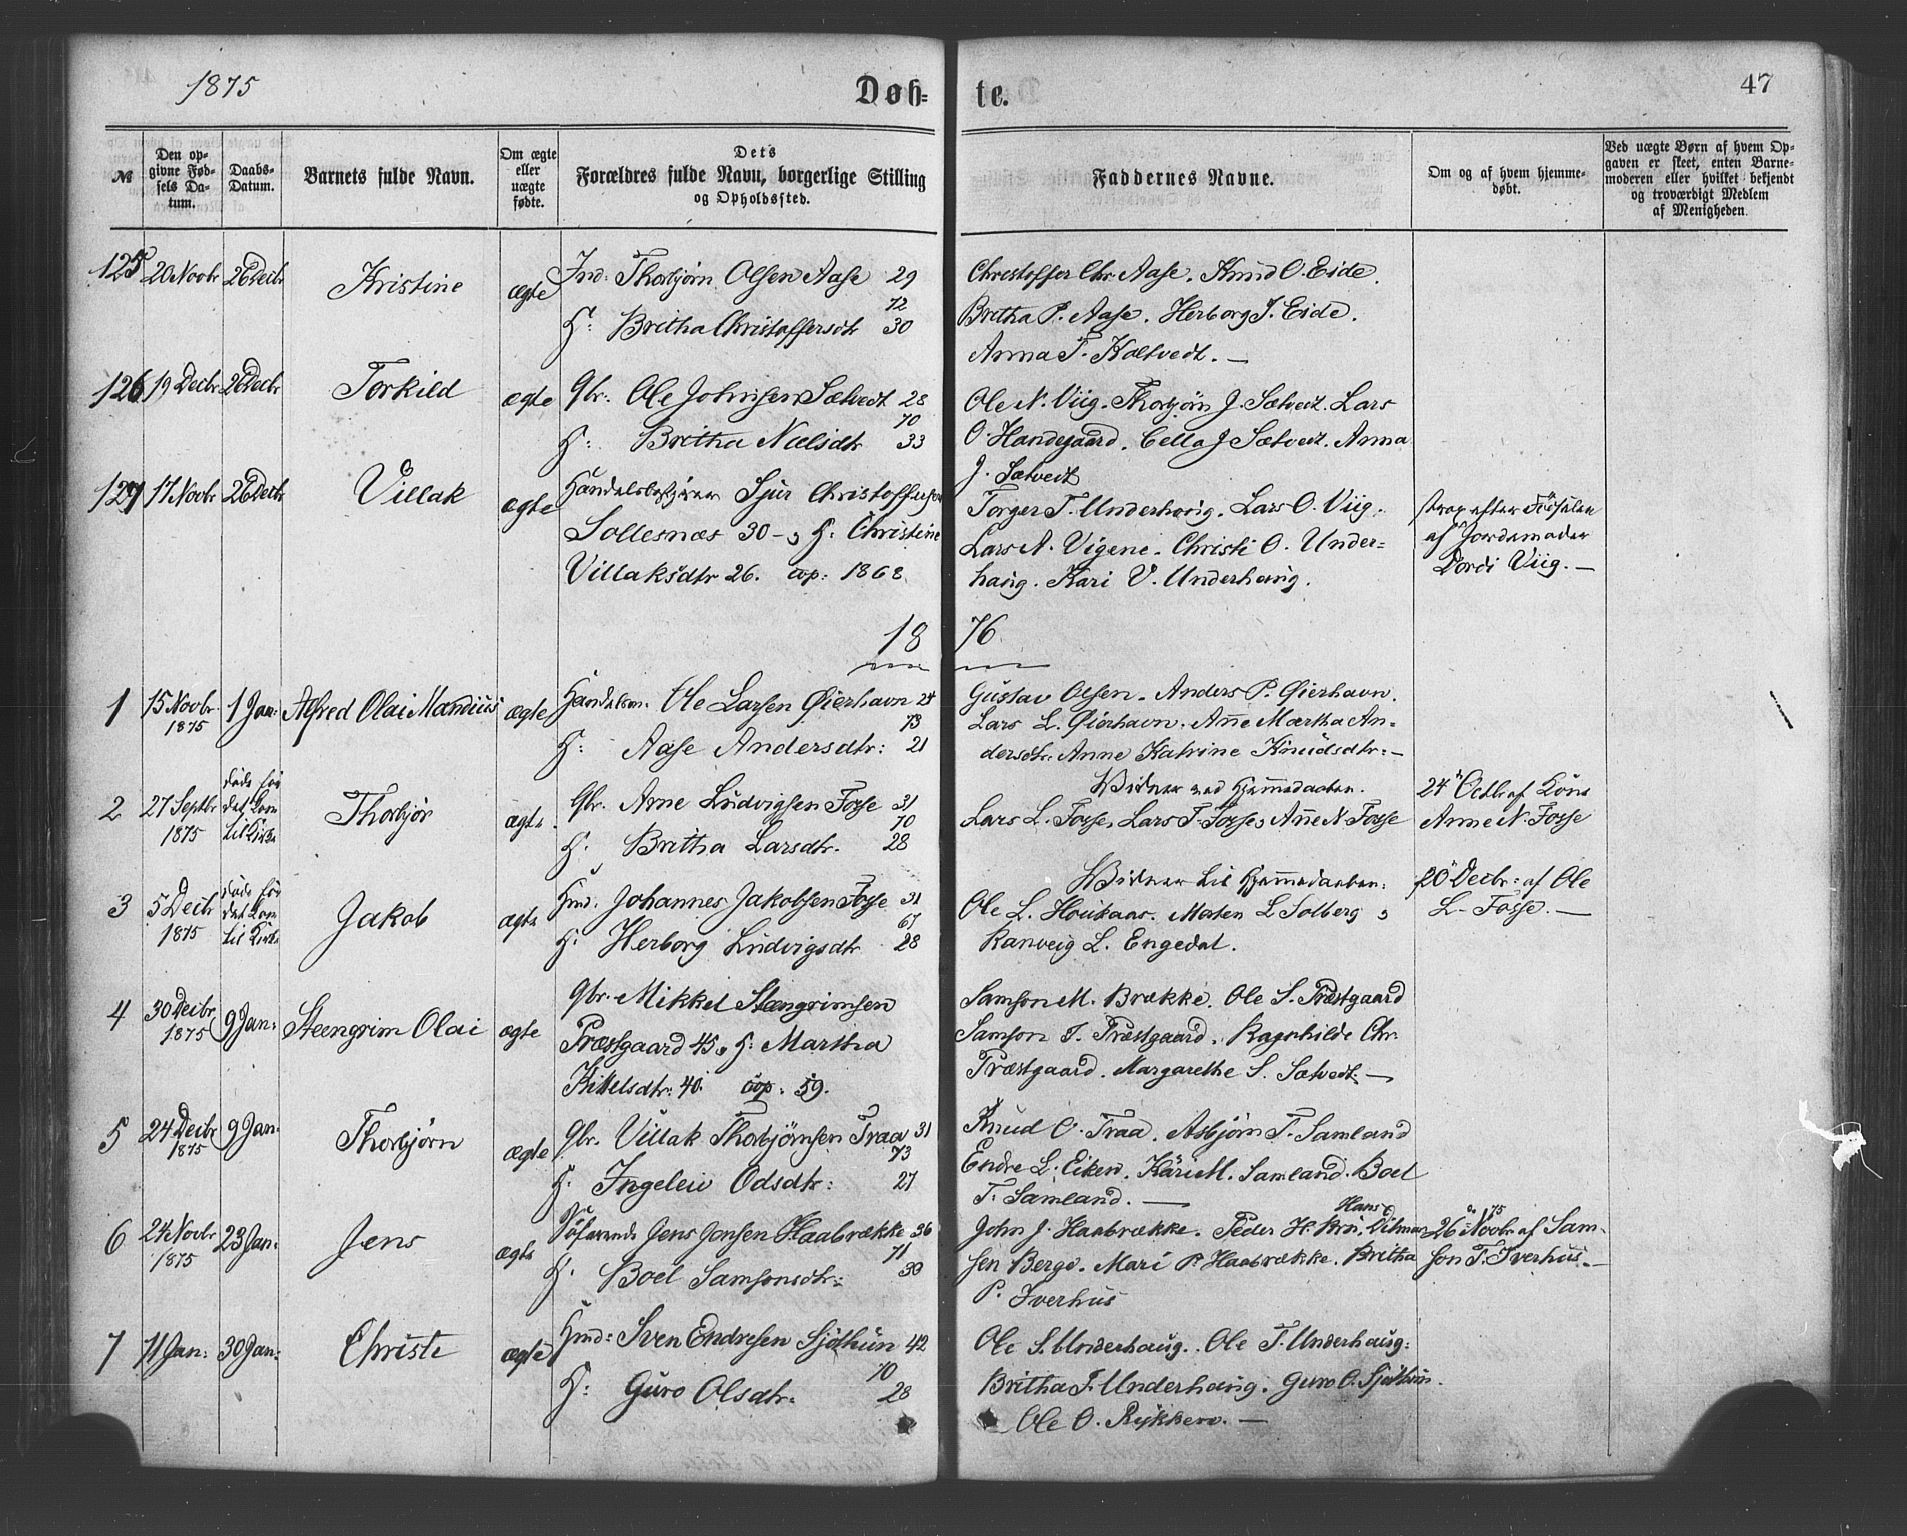 1875
Døb= te.
47
№
Den op-
givne Fød-
sels Da-
tum.
Daabs-
Datum.
Barnets fulde Navn.
Om ægte
eller
uægte
fødte.
Dets
Forældres fulde Navn, borgerlige Stilling
og Opholdssted.
Faddernes Navne.
Om og af hvem hjemme-
døbt.
Ved uægte Børn af hvem Op-
gaven er skeet, enten Barne-
moderen eller hvilket bekjendt
og troværdigt Medlem
af Menigheden.
125 20 Novbr 26 Decbr Kristine ægte
Ind: Thorbjørn Olsen Aase 29
72
H: Britha Christoffersdtr 30
Christoffer Chr. Aase. Knud O. Eide.
Britha P. Aase. Herborg J. Eide.
Anna T. Kaltvedt. —
126 19 Decbr 26 Decbr Torkild ægte
Gbr. Ole Johnsen Sætvedt 28
70
H: Britha Nilsdtr 33
Ole N. Viig. Thorbjørn J. Sætvedt. Lars
O. Handegaard. Cella J Sætvedt. Anna
J. Sætvedt
127 17 Novbr 26 Decbr Villak ægte
Handelsbestyrer Sjur Christoffersen
Sollesnæs 30 - H: Christine
Villaksdtr 26. cop: 1868
Torger T. Underhaug. Lars O. Viig.
Lars A. Vigene. Christi O. Under=
haug. Kari V. Underhaug.
strax efter Fødselen
af Jordemoder
Dordi Viig. —
18 76
1 15 Novbr 1875 1 Jan: Alfred Olai Mandius ægte
Handelsm. Ole Larsen Øierhavn 24
73
H: Aase Andersdtr: 21
Gustav Olsen. Anders P. Øierhavn.
Lars L. Øierhavn. Anne Martha An-
dersdtr. Anne Katrine Knudsdtr: —
2 27 Septbr 1875 døde før det kom til Kirke Thorbjør ægte.
Gbr. Arne Ludvigsen Fosse 31
70
H. Britha Larsdtr. 28
Vidner ved Hjemmedaaben.
Lars L. Fosse, Lars T. Fosse, Anne N. Fosse
24 Octbr af Kone
Anne N. Fosse
3 5 Decbr 1875 døde før det kom til Kirke Jakob ægte
Hmd. Johannes Jakobsen Fosse 31
67
H: Herborg Ludvigsdtr 28
Vidner til Hjemmedaaben:
Ole L. Houkaas. Maten L Solberg
Ranveig L. Engedal.
20 Decbr: af Ole
L. Fosse. —
4 30 Decbr 1875 9 Jan: Steengrim Olai ægte
Gbr. Mikkel Steengrimsen
Præstgaard 45, H: Martha
Kittelsdtr: 40. cop: 59.
Samson M. Brække. Ole S. Præstgaard
Samson T. Præstgaard. Ragnhilde Chr.
Præstgaard. Margarethe S. Sætvedt. —
5 24 Decbr 1875 9 Jan: Thorbjørn ægte
Gbr. Villak Thorbjørnsen Traa 31
73
H. Ingeleiv Odsdtr: 27
Knud O. Traa. Asbjørn T. Samland
Endre L. Eiken. Kari M. Samland. Boel
T. Samland. —
6 24 Novbr 1875 23 Jan: Jens ægte
Søfarende Jens Jonsen Haabrække 36
71
H. Boel Samsonsdtr: 30
Hans
John J. Haabrække. Peder H.
sen Berge. Mari P. Haabrække. Britha
P. Iverhus
75
26 Novbr af Sam-
son T. Iverhus. —
7 11 Jan: 30 Jan: Christi ægte
Hmd: Sven Endresen Sjøthun 42
70
H: Guro Olsdtr. 28
Ole S. Underhaug. Ole T. Underhaug:
Britha T. Underhaug. Guro O. Sjøthun.
Ole O. Rykken. —